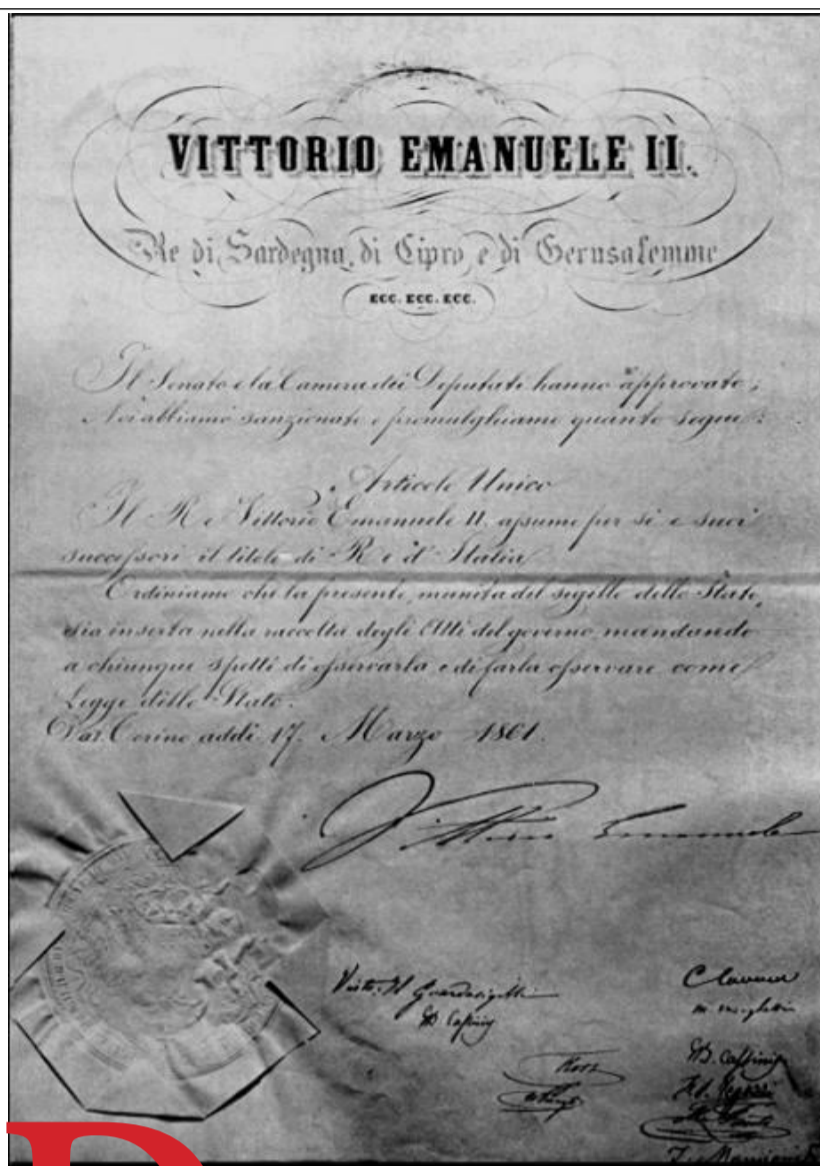 VITTORIO EMANUELE II.
Re di Sardegna, di Cipro e di Gerusalemme
ECC. ECC. ECC.
Il Senato e la Camera dei Deputati hanno approvato;
Noi abbiamo sanzionato e promulghiamo quanto segue:
Articolo Unico
Il Re Vittorio Emanuele II assume per sè e suoi
successori il titolo di Re d'Italia
Ordiniamo che la presente, munita del sigillo dello Stato,
sia inserta nella raccolta degli Atti del governo, mandando
a chiunque spetti di osservarla e di farla osservare come
Legge dello Stato.
Dat Torino addi 17 Marzo 1861.
Vittorio Emanuele
Visto: Il Guardasigilli
C Cavour
G. B. Cassinis
M. Minghetti
G. B. Cassinis